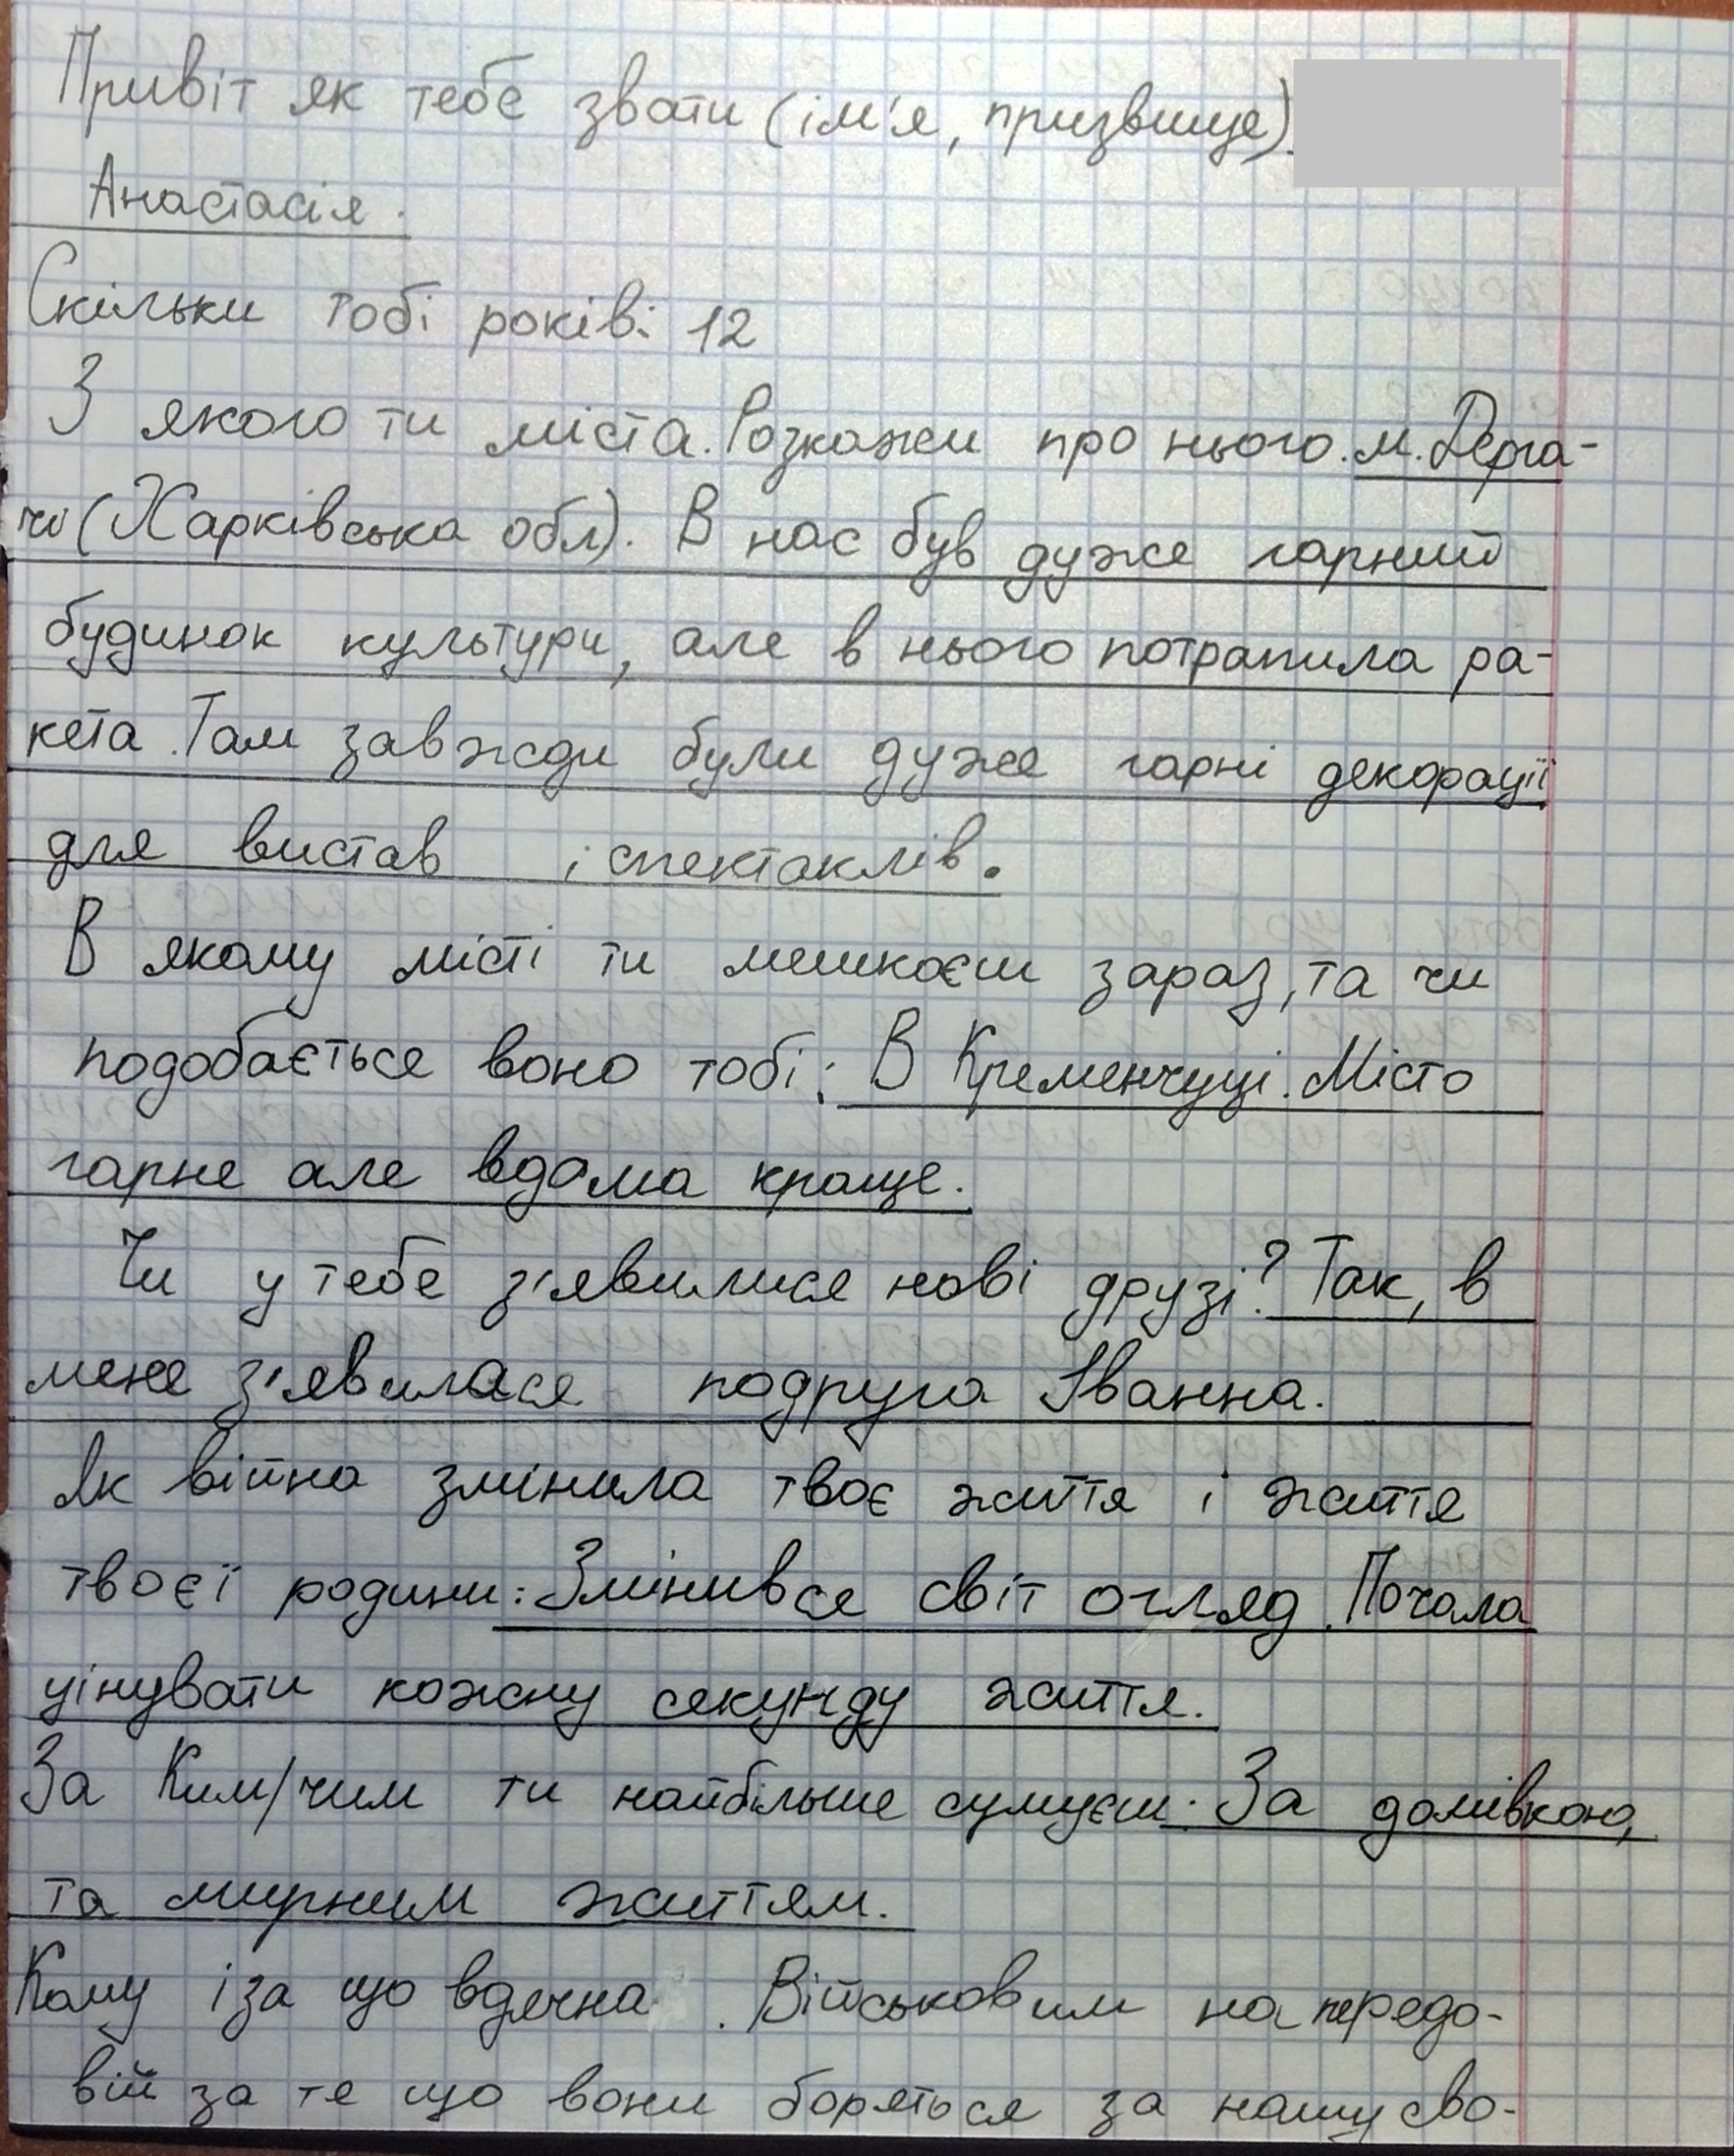 Привіт як тебе звати (ім'я, призвище).
Анастасія.
Скільки тобі років: 12
З якого ти міста. Розкажи про нього. м. Дерга-
чі (Харківська обл). В нас був дуже гарний
будинок культури, але в нього потрапила ра-
кета. Там завжди були дуже гарні декорації
для вистав і спектаклів.
В якому місті ти мешкаєш зараз, та чи
подобається воно тобі: В Кременчуці. Місто
гарне але вдома краще.
Чи у тебе з'явилися нові друзі? Так, в
мене з'явилася подруга Іванна.
Як війна змінила твоє життя і життя
твоєї родини: Змінився світ огляд. Почала
цінувати кожну секунду життя.
За Ким/чим ти найбільше сумуєш: За домівкою,
та мирним життям.
Кому і за що вдячна. Військовим на передо-
вій за те що вони боряться за нашу сво-